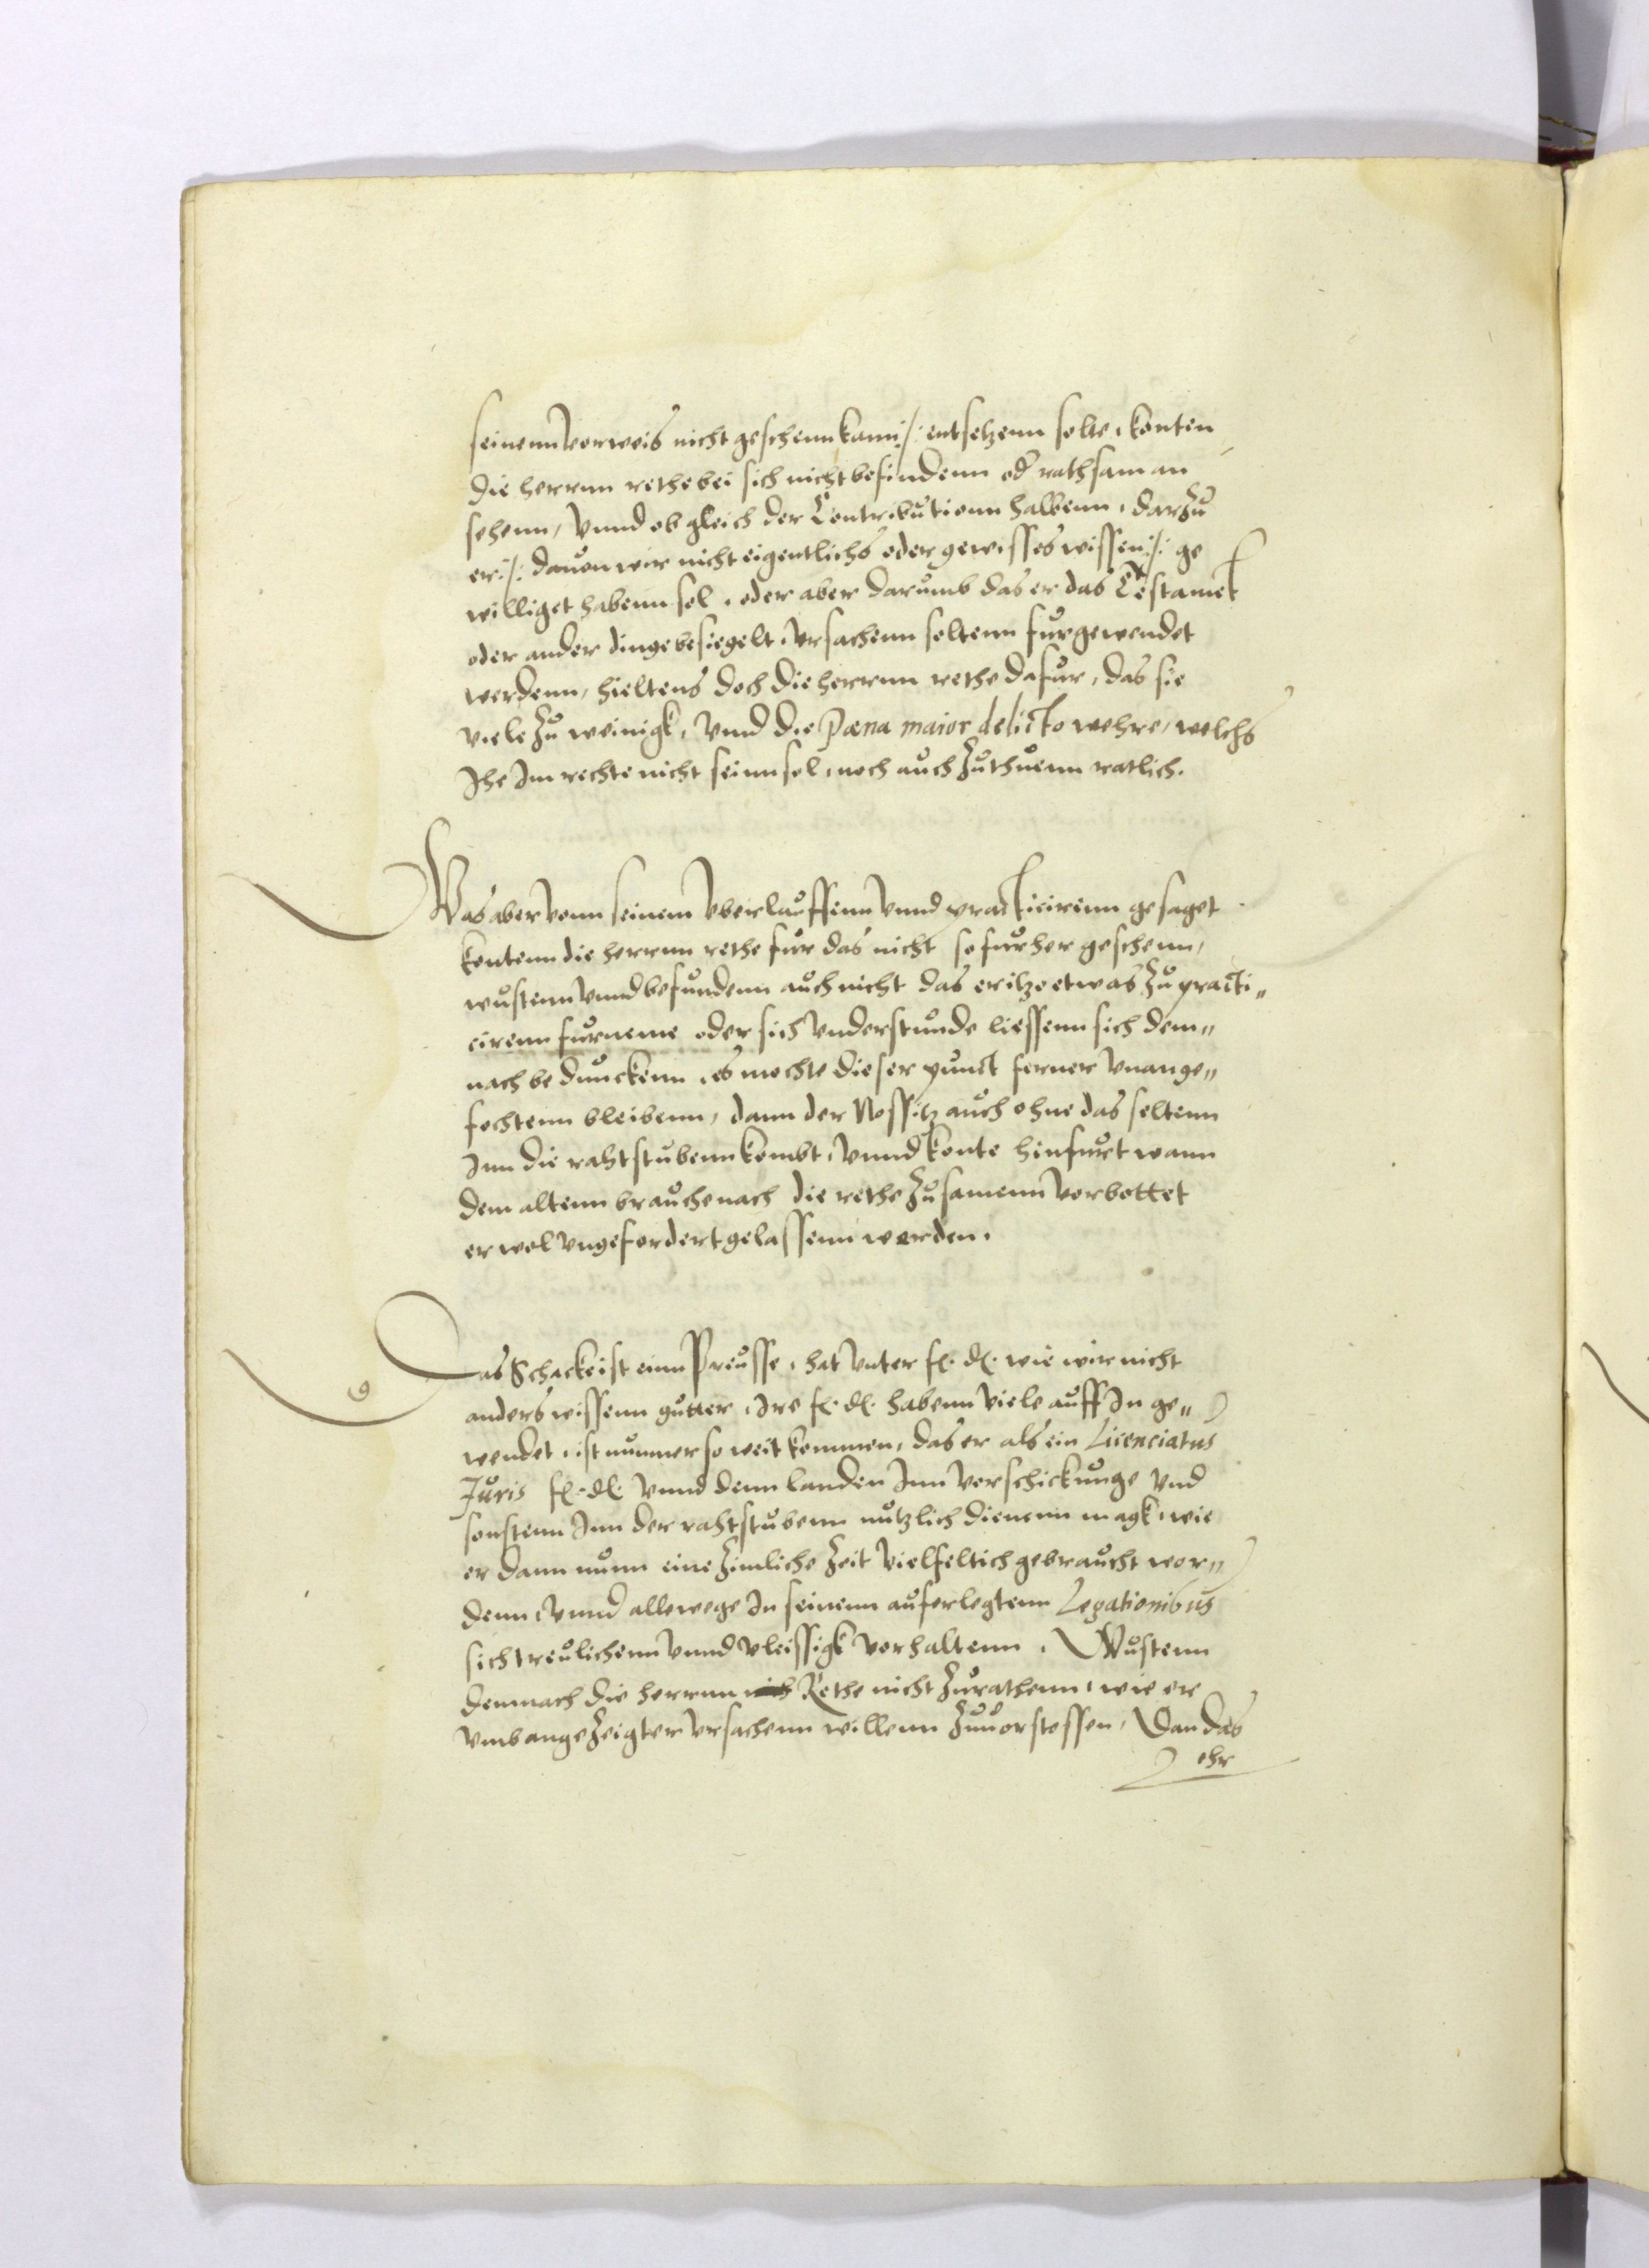 seinenn vorweis nicht geschenn kann :/: entsetzenn solte, konten
die herrnn rethe bei sich nicht befindenn od rathsam an
sehenn, vnnd ob gleich der Contributionn halbenn, darzu
er :/: dauon wir nicht eigentlichs oder gewisses wissen :/: ge
williget habenn sol, oder aber darumb das er das Testamet
oder ander dinge besiegelt, vrsachenn soltenn furgewendet
werdenn, hieltens doch die herrnn rethe dafur, das sie
viele zu weinigk, vnnd die pæna maior delicto wehre, welchs
Ihe Im rechte nicht seinn sol, noch auch zuthuenn ratlich.
Was aber vonn seinem vberlauffenn vnnd practicirenn gesaget
kontenn die herrnn rethe fur das nicht so furher geschenn,
wustenn vnnd befundenn auch nicht das er itzo etwas zu practi„
cirenn furneme oder sich vnderstunde liessenn sich dem„
nach bedunckenn, es mochte dieser punct ferner vnange„
fochtenn bleibenn, dann der Nossitz auch ohne das seltenn
Inn die rahtstubenn kombt, vnnd konte hinfurt wann
dem altenn brauche nach die rethe zusamenn vorbottet
er wol vngefordert gelassenn werden.
Das Schacke ist einn Preusse, hat vnter f. d. wie wir nicht
anders wissenn gutter, Ire f. d. habenn viele auff In ge„
wendet, ist nunmer so weit kommen, das er als ein Licenciatus
Juris f. d. vnnd denn landen Inn verschickunge vnd
sonstenn Inn der rahtstubenn nutzlich dienenn magk, wie
er dann nunn eine zimliche zeit vielfeltich gebraucht wor„
denn, vnnd allewege In seinenn auferlegtenn Legationibus
sich treulichenn vnnd vleissigk vorhaltenn. Wustenn
demnach die herrnn Rethe nicht zurathenn, wie er
vmb angezeigter vrsachenn willenn zuuorstossen, Dan das
ehr